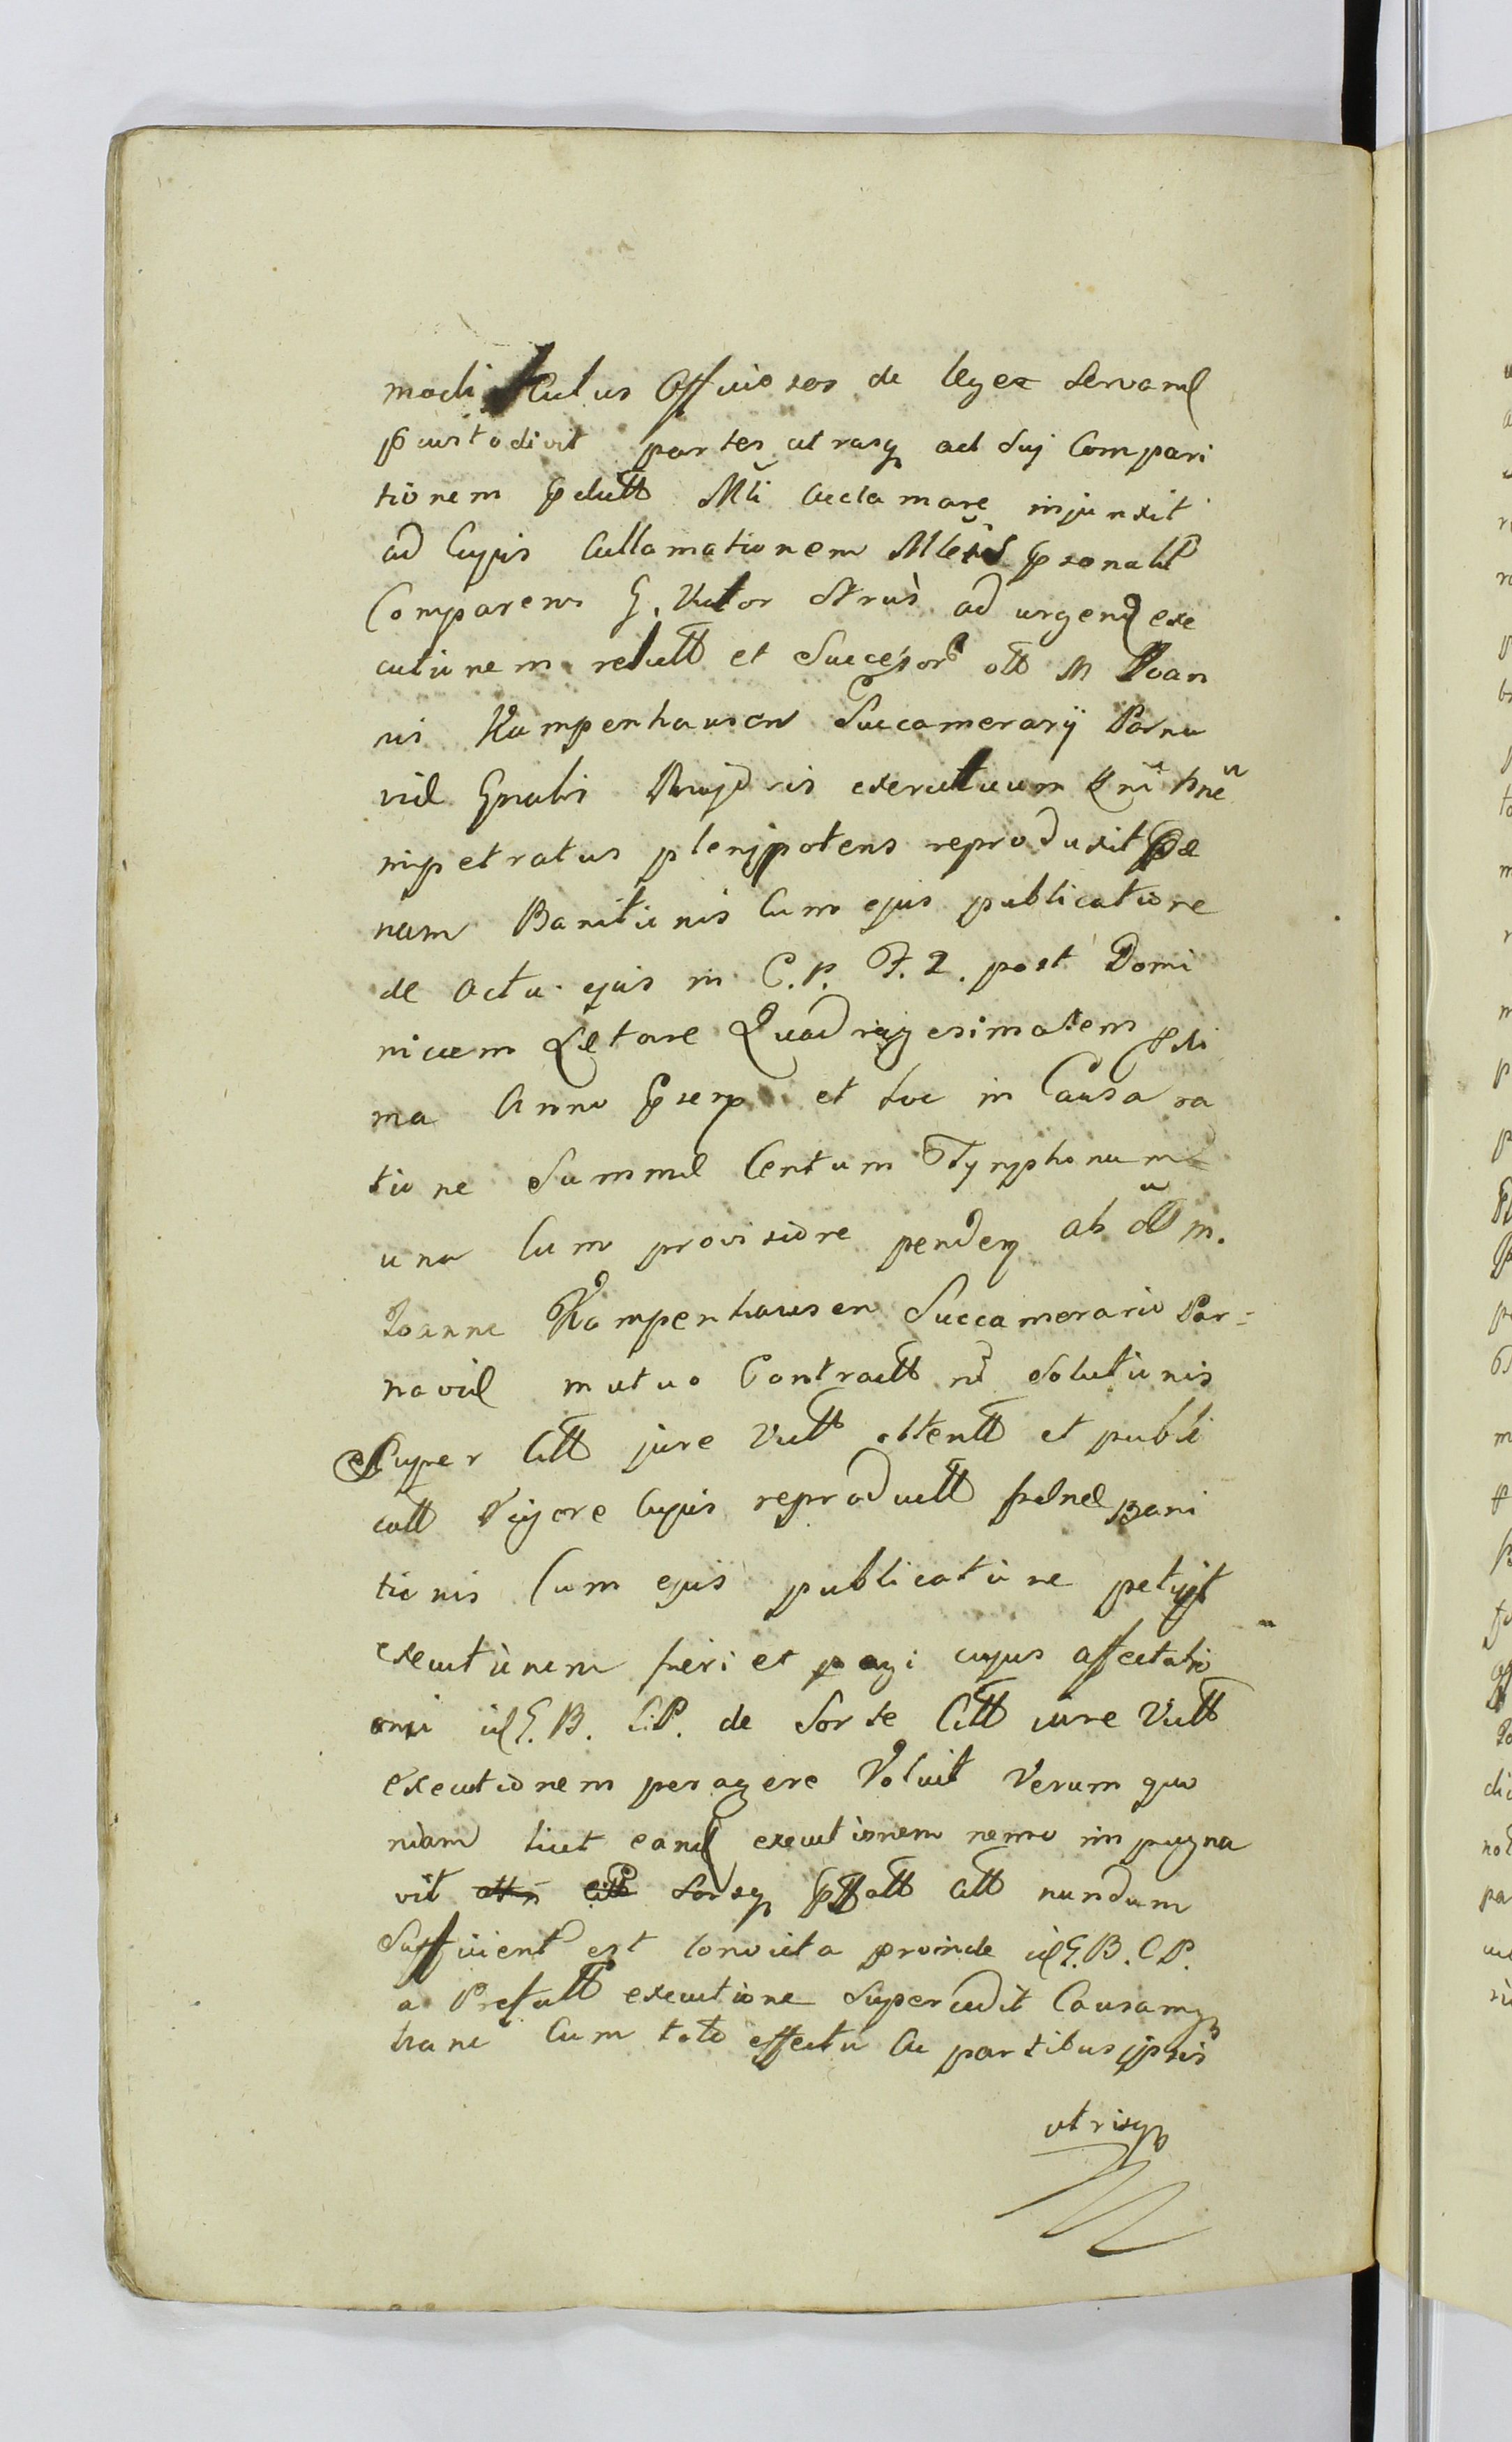 modi Actus Officiosos de lege Servand
pcustodivit partes utrasq ad Suj Compari
tionem pdutt Mli acclamare injunxit
ad Cujus Acclamationem personalit
Comparens G. Victor Strus ad urgend exe
cutionem relutt et Successor ott M Joan
nis Kampenhausen Succamerarij Parna
vien Gnalis executivum
impetratus plenipotens reproduxit pæ
nam Banitionis Cum ejus publicatione
de actu ejus in C. P. F. 2. post Domi
nicam Letare Quadragesimalem pxi
ma Anno psenp et hoc in Causa ra
tione Summæ Centum Tynphonum
una Cum provisione penden ab ott M.
Joanne Kampenhausen Succamerario Par=
navien mutuo Contractt nõ Solutionis
Super Citt jure Victt obtentt et publi
catt Vigore Cujus reproductt pænæ Bani
tionis Cum ejus publicatione petijt
executionem fieri et pagi cujus affectatio
oni iud G. B. C. P. de Sorte Citt iure Victt
executionem peragere Voluit Verum quo
niam licet eand executionem nemo impugna
vit Sorsq att nundum
Sufficient est convicta proinde iud G. B. C. P.
a Prefatt executione Supercedit Causamq
hanc Cum toto effectu Ac partibus ipsis
utrisq